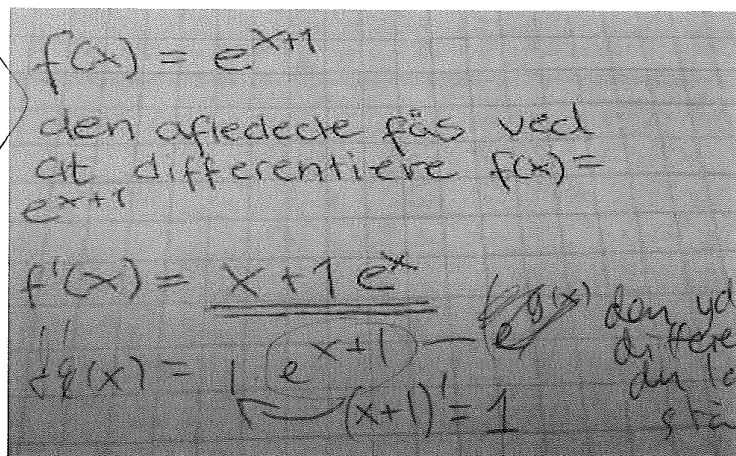 f(x) = e^{x+1}
den afledede fås ved
at differentiere f(x) =
e^{x+1}
f'(x) = x + 1 e^x
(x) = 1 · e^{x+1} — e^{g(x)} den yd
differe
du la
stå
(x+1)' = 1